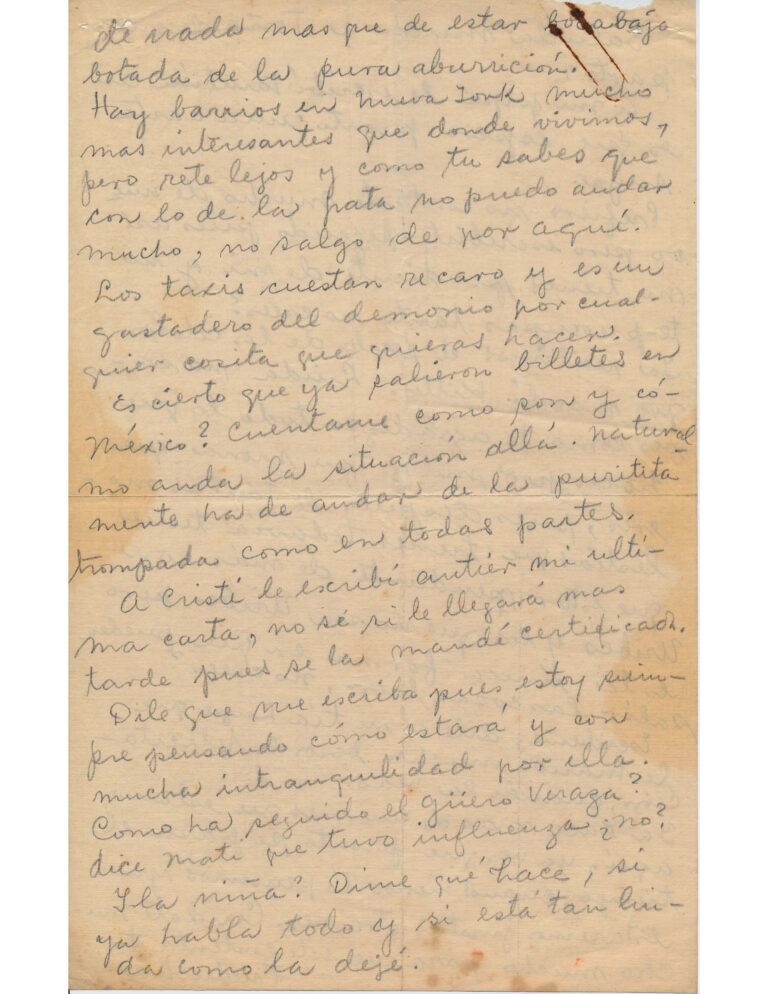 de nada mas que de estar boca bajo
botada de la pura aburrición.
Hay barrios en Nueva York mucho
mas interesantes que donde vivimos,
pero rete lejos y como tu sabes que
con lo de la pata no puedo andar
mucho, no salgo de por aquí.
Los taxis cuestan re caro y es un
gastadero del demonio por cual-
quier cosita que quieras hacer.
Es cierto que ya salieron billetes en
México? Cuentame como son y có-
mo anda la situación allá. Natural-
mente ha de andar de la puritita
trompada como en todas partes.
A Cristi le escribí antier mi ulti-
ma carta, no sé si le llegará mas
tarde pues se la mandé certificada.
Dile que me escriba pues estoy siem-
pre pensando cómo estará y con
mucha intranquilidad por ella.
Como ha seguido el güero Veraza?
dice Mati que tuvo influenza ¿no?
Y la niña? Dime qué hace, si
ya habla todo y si está tan lin-
da como la dejé.